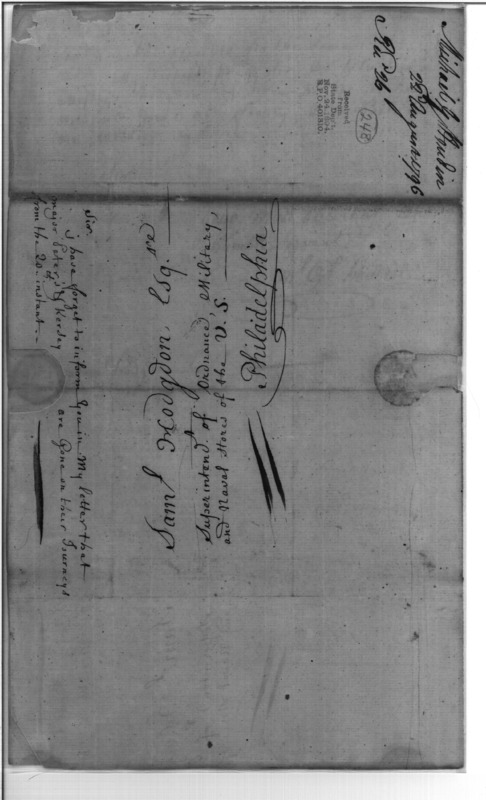 Michael G. Houdin
22d August 1796
No. 26
248
Received
from
State Dep't.
Nov. 24, 1894.
R.P.O. 401310.
Saml. Hodgdon, Esqre
Superintend.t of Ordnance, Military,
and Naval Stores of the U. S.
Philadelphia
Sir
I have forget to inform you in My letter that
major Peters & Kersey are Gone on their Journeys
from the 20 instant